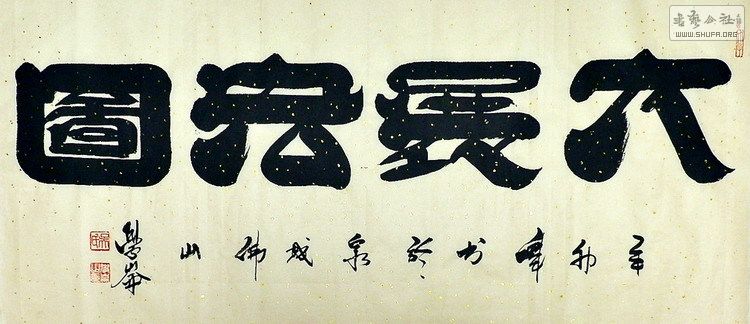 大展宏圖
辛卯書於泉城佛山
书艺公社
WWW.SHUFA.ORG